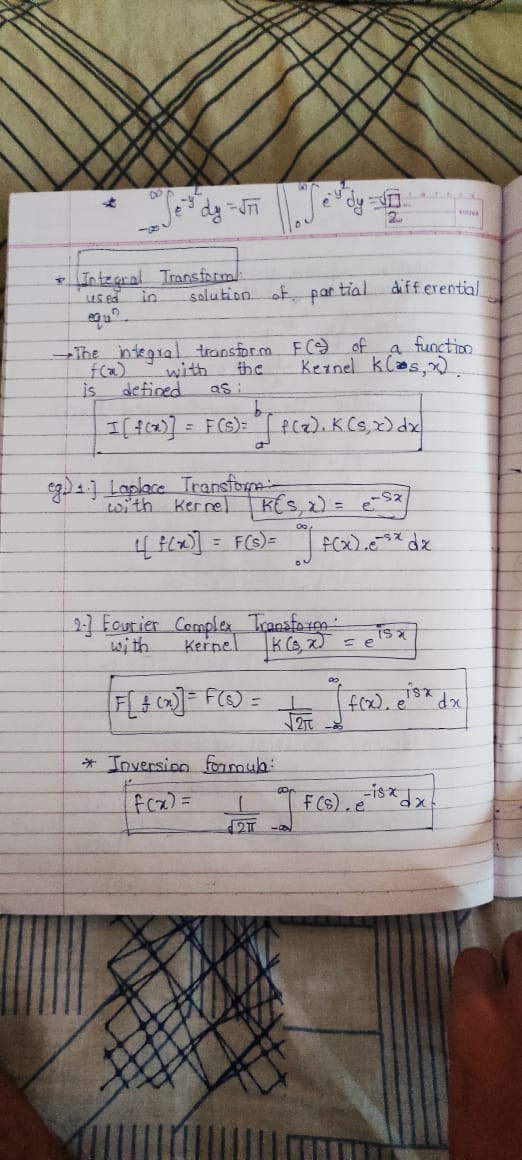 * -∞∫∞ e^-y² dy = √π || 0∫∞ e^-y² dy = √π/2
* Integral Transform:
used in solution of partial differential
equⁿ.
→ The integral transform F(s) of a function
f(x) with the Kernel K(s,x)
is defined as:
I[f(x)] = F(s) = a∫b f(x). K(s,x) dx
eg.) 1.] Laplace Transform:-
with Kernel K(s,x) = e^-sx
L[f(x)] = F(s) = 0∫∞ f(x).e^-sx dx
2.] Fourier Complex Transform:
with Kernel K(s,x) = e^isx
F[f(x)] = F(s) = 1/√2π -∞∫∞ f(x). e^isx dx
* Inversion formula:
f(x) = 1/√2π -∞∫∞ F(s).e^-isx dx